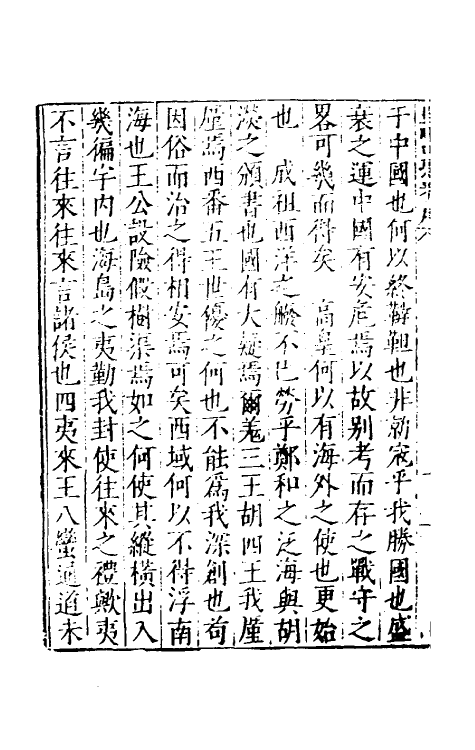 于中國也何以終韃靼也非新寇乎我勝國也盛
衰之運中國有安危焉以故别考而存之戰守之
畧可幾而得矣　高皇何以有海外之使也更始
也　成祖西洋之艅不已勞乎鄭和之泛海與胡
濙之頒書也國有大疑焉爾羗三王胡四王我廑
廑焉西番五王世優之何也不能爲我深創也茍
因俗而治之得相安焉可矣西域何以不得浮南
海也王公設險假樹渠焉如之何使其縱横出入
幾徧宇内也海島之夷勤我封使往來之禮歟夷
不言往來往來言諸侯也四夷來王八蠻通道未